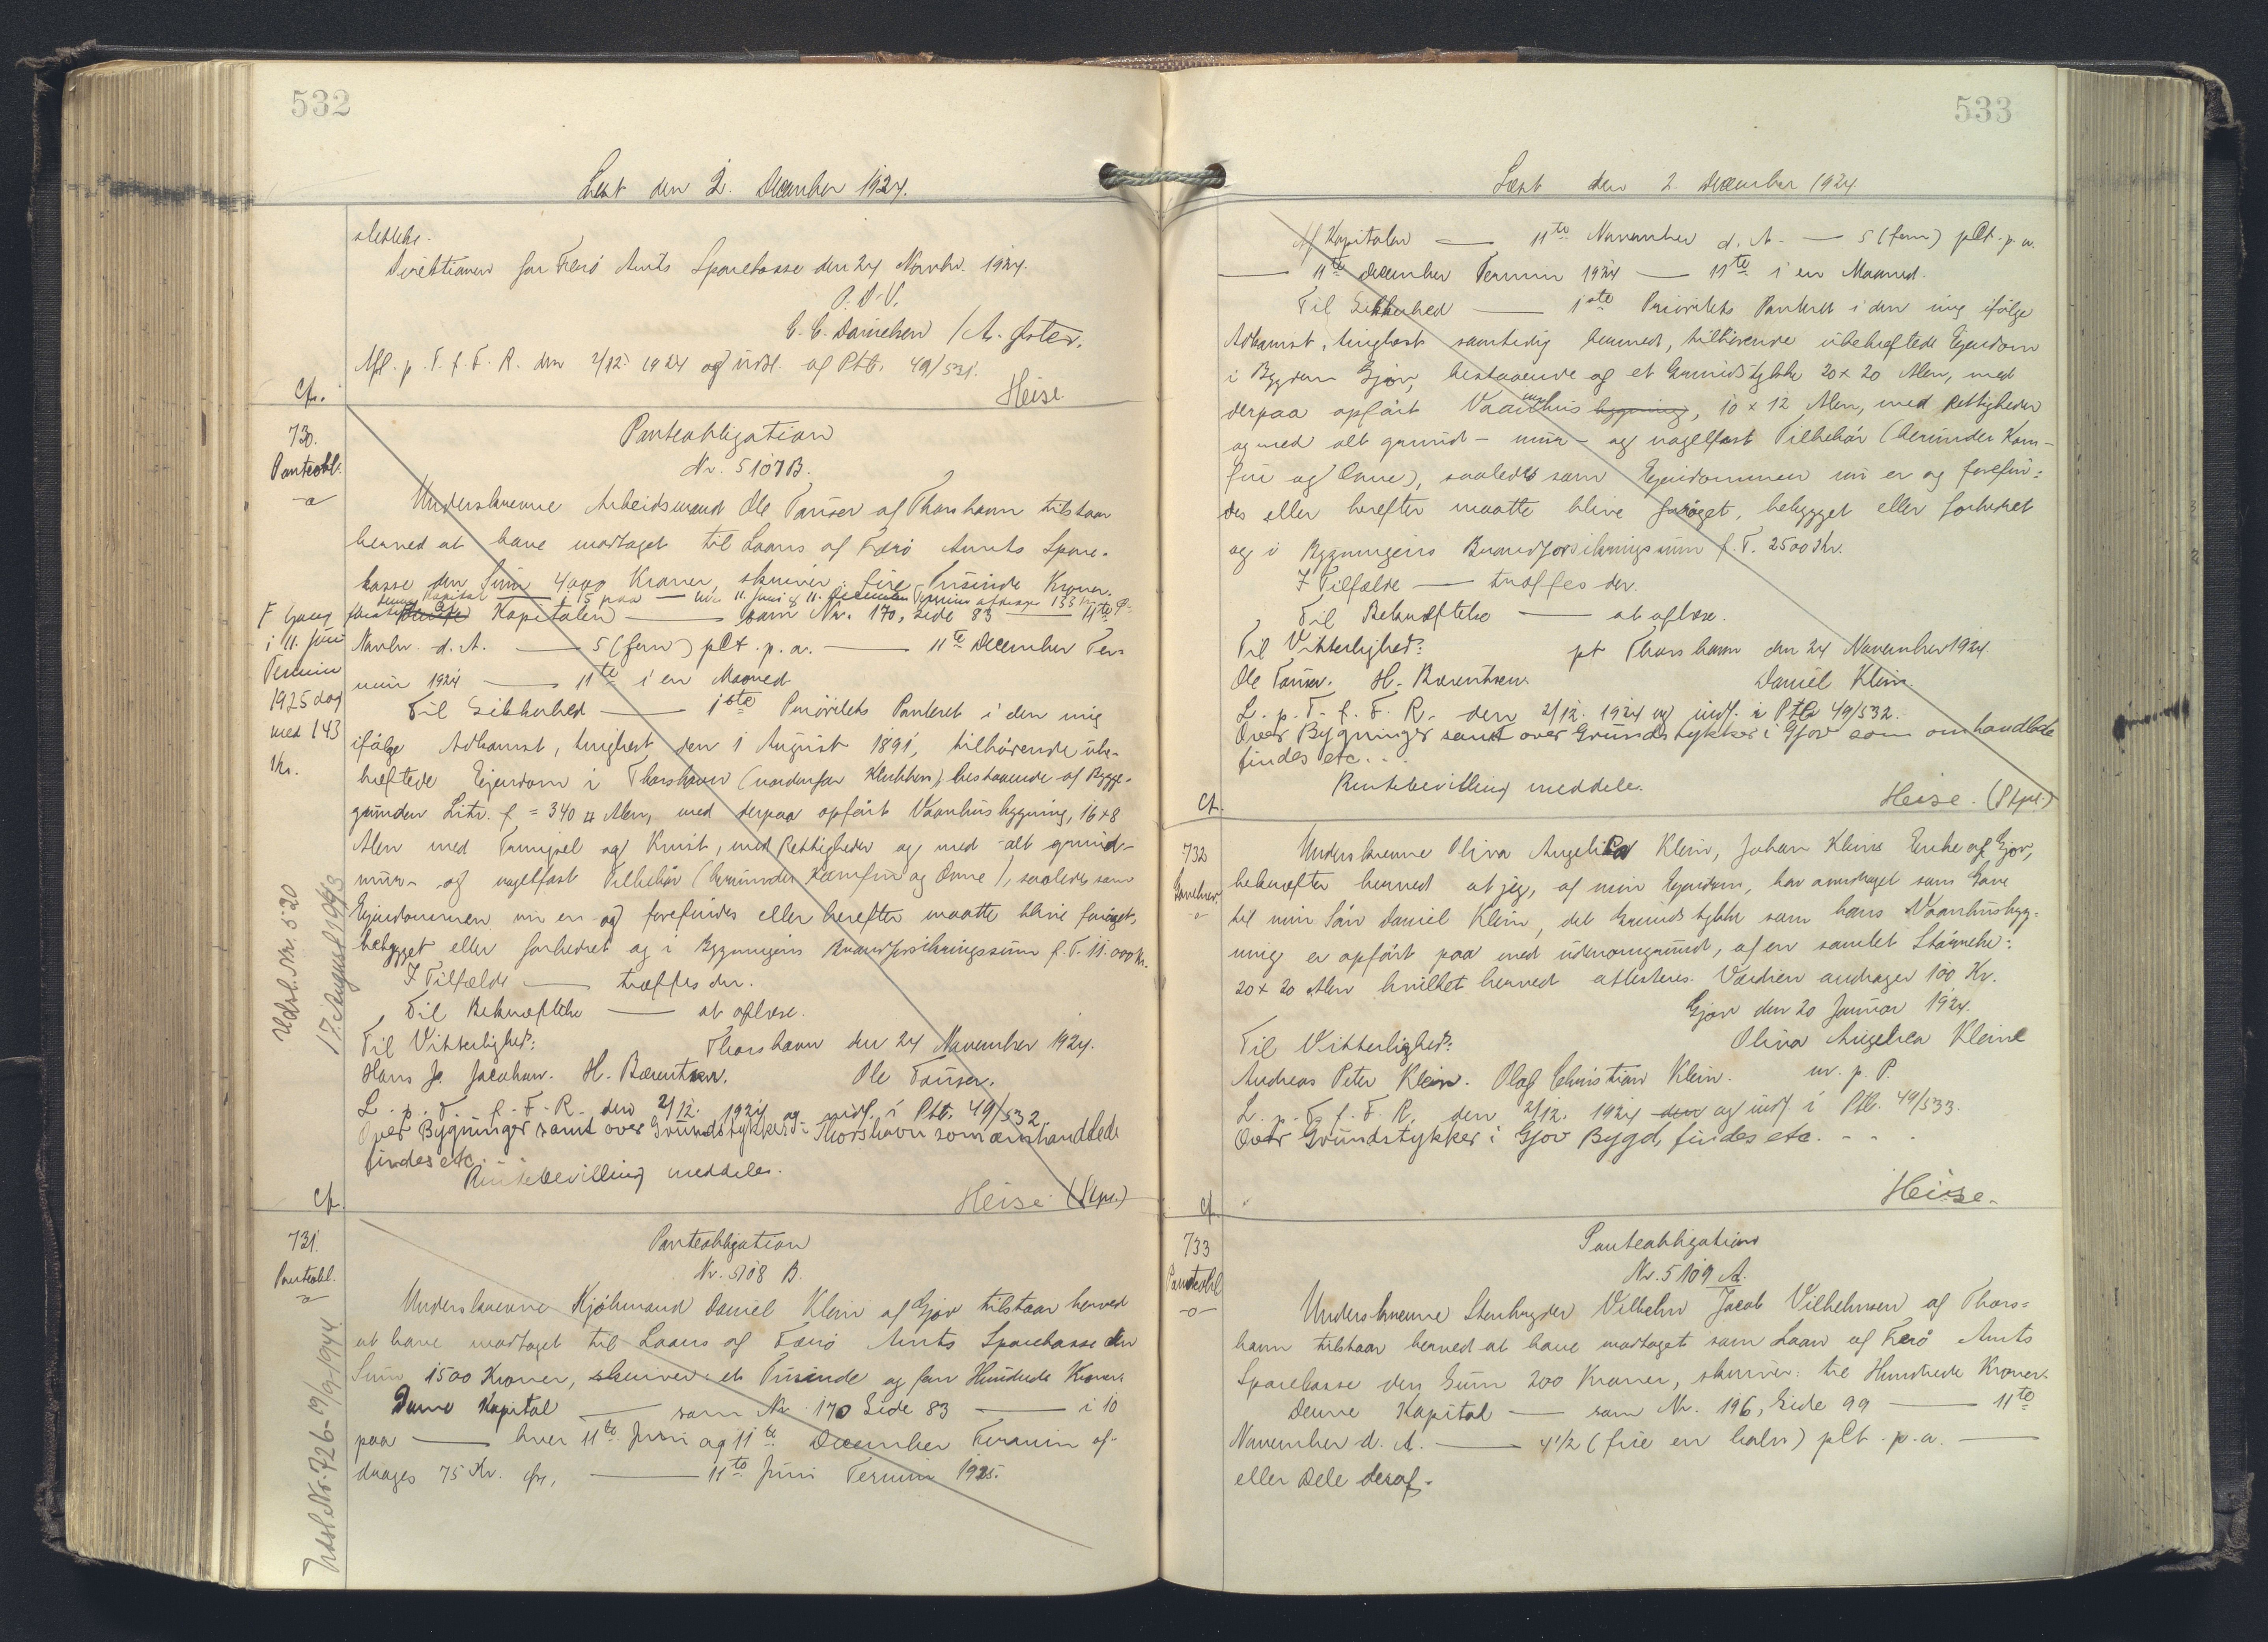 532
Læst den 2. December 1924.
slettebr.
Direktionen for Færø Amts Sparekasse den 24 Novbr. 1924.
P. D. V.
C. C. Danielsen / A. Øster.
Afl. p. T. f. F. R. den 2/12 1924 og udsl. af Ptb. 49/521.
Cf.
Heise
730.
Panteobl.
Panteobligation
Nr. 5107 B.
Underskrevne Arbeidsmand Ole Tausen af Thorshavn tilstaar
herved at have modtaget til Laans af Færø Amts Spare-
kasse den Sum 4000 Kroner, skriver: fire Tusinde Kroner.
Denne Kapital 15 paa 11. Juni & 11. December Termin afdrages 133 Kr.
Kapitalen som Nr. 170, Side 83 11te
F. Gang
i 11. Juni
Termin
1925 dog
med 143
Kr.
Novbr. d. A. 5 (fem) pCt. p. a. 11te December Ter-
min 1924 11te i en Maaned
Til Sikkerhed 1ste Prioritets Panteret i den mig
ifølge Adkomst, tinglæst den 1 August 1891, tilhørende ube-
hæftede Ejendom i Thorshavn (nordenfor Klubben), bestaaende af Bygge-
grunden Litr. f = 340 □ Alen, med derpaa opført Vaanhusbygning, 16 x 8
Alen med Kvist, med Rettigheder og med alt grund-
mur- og nagelfast Tilbehør (herunder Komfur og Ovne), saaledes som
Ejendommen nu er og forefindes eller herefter maatte blive forøget,
bebygget eller forbedret og i Bygningens Brandforsikringssum f. T. 11.000 Kr.
I Tilfælde træffes der.
Til Bekræftelse at oplæse.
Til Vitterlighed: Thorshavn den 24 November 1924.
Hans Jc. Jacobsen. H. Barentsen. Ole Tausen.
L. p. T. f. F. R. den 2/12 1924 og indf. i Ptb. 49/532
Over Bygninger samt over Grundstykker i Thorshavn som omhandlede
findes etc.
Rentebevilling meddeles.
Cf.
Heise (Stpl.)
Udsl. Nr. 520
17. August 1943
731.
Panteobl.
Panteobligation
Nr. 5108 B.
Underskrevne Kjøbmand Daniel Klein af Gjov tilstaar herved
at have modtaget til Laans af Færø Amts Sparekasse den
Sum 1500 Kroner, skriver: et Tusinde og fem Hundrede Kroner.
Denne Kapital som Nr. 170 Side 83 i 10
paa hver 11te Juni og 11te December Termin af-
drages 75 Kr. 11te Juni Termin 1925.
Udsl. Nr. 726 - 19/9 - 1944.
533
Læst den 2. December 1924
Af Kapitalen 11te November d. A. 5 (fem) pCt. p. a.
11te December Termin 1924 11te i en Maaned.
Til Sikkerhed 1ste Prioritets Panteret i den mig ifølge
Adkomst, tinglæst samtidig hermed, tilhørende ubehæftede Ejendom
i Bygden Gjov, bestaaende af et Grundstykke 20 x 20 Alen, med
derpaa opført Vaaninghus bygning, 10 x 12 Alen, med Rettigheder
og med alt grund- mur- og nagelfast Tilbehør (herunder Kom-
fur og Ovne), saaledes som Ejendommen nu er og forefin-
des eller herefter maatte blive forøget, bebygget eller forbedret
og i Bygningens Brandforsikringssum f. T. 2500 Kr.
I Tilfælde træffes der.
Til Bekræftelse at oplæse.
Til Vitterlighed: pt Thorshavn den 24 November 1924.
Ole Tausen. H. Barentsen. Daniel Klein.
L. p. T. f. F. R. den 2/12 1924 og indf. i Ptb 49/532.
Over Bygninger samt over Grundstykker i Gjov som omhandlede
findes etc. . .
Rentebevilling meddeles.
Cf.
Heise. (Stpl.)
732
Gavebrev.
Underskrevne Oliva Angelica Klein, Johan Kleins Enke af Gjov,
bekræfter herved at jeg, af min Ejendom, har overdraget som Gave
til min Søn Daniel Klein, det Grundstykke som hans Vaanhusbyg-
ning er opført paa med udenomgrund, af en samlet Størrelse:
20 x 20 Alen hvilket herved attesteres. Værdien andrager 100 Kr.
Gjov den 20 Januar 1924.
Til Vitterlighed: Oliva Angelica Klein
Andreas Peter Klein. Olaf Christian Klein. m. p. P.
L. p. T. f. F. R. den 2/12 1924 den og indf. i Ptb. 49/533.
Over Grundstykker i Gjov Bygd, findes etc. - - .
Cf.
Heise.
733
Panteobl
Panteobligation
Nr. 5109 A.
Underskrevne Stenhugger Vilhelm Jacob Vilhelmsen af Thors-
havn tilstaar herved at have modtaget som Laan af Færø Amts
Sparekasse den Sum 200 Kroner, skriver: to Hundrede Kroner.
Denne Kapital som Nr. 196, Side 99 11te
November d. A. 4 1/2 (fire en halv) pCt. p. a.
eller Dele deraf.